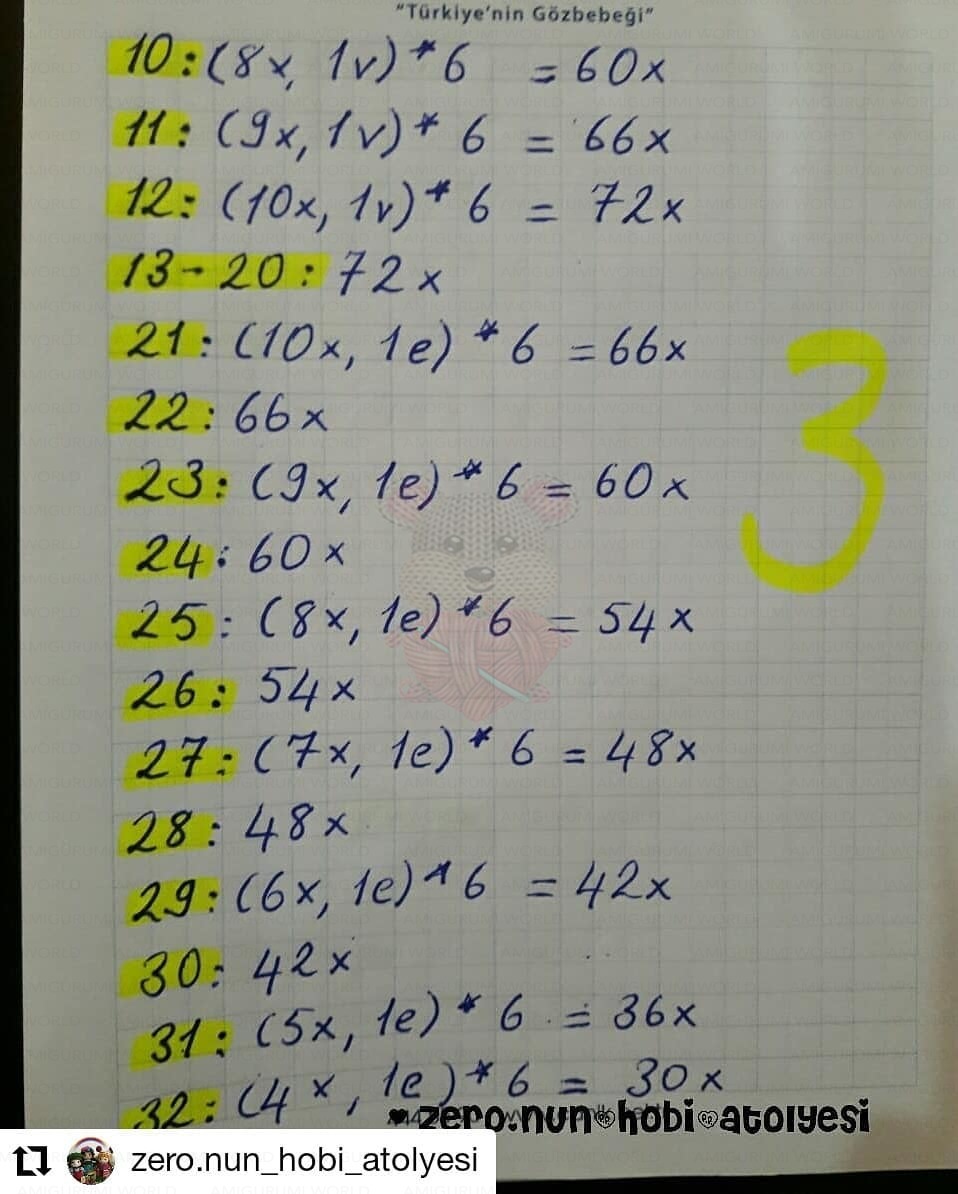 "Türkiye'nin Gözbebeği"
10: (8x, 1v) * 6 = 60x
11: (9x, 1v) * 6 = 66x
12: (10x, 1v) * 6 = 72x
13-20: 72x
21: (10x, 1e) * 6 = 66x
22: 66x
23: (9x, 1e) * 6 = 60x
24: 60x
25: (8x, 1e) * 6 = 54x
26: 54x
27: (7x, 1e) * 6 = 48x
28: 48x
29: (6x, 1e) * 6 = 42x
30: 42x
31: (5x, 1e) * 6 = 36x
32: (4x, 1e) * 6 = 30x
3
zero.nun hobi atolyesi
zero.nun_hobi_atolyesi